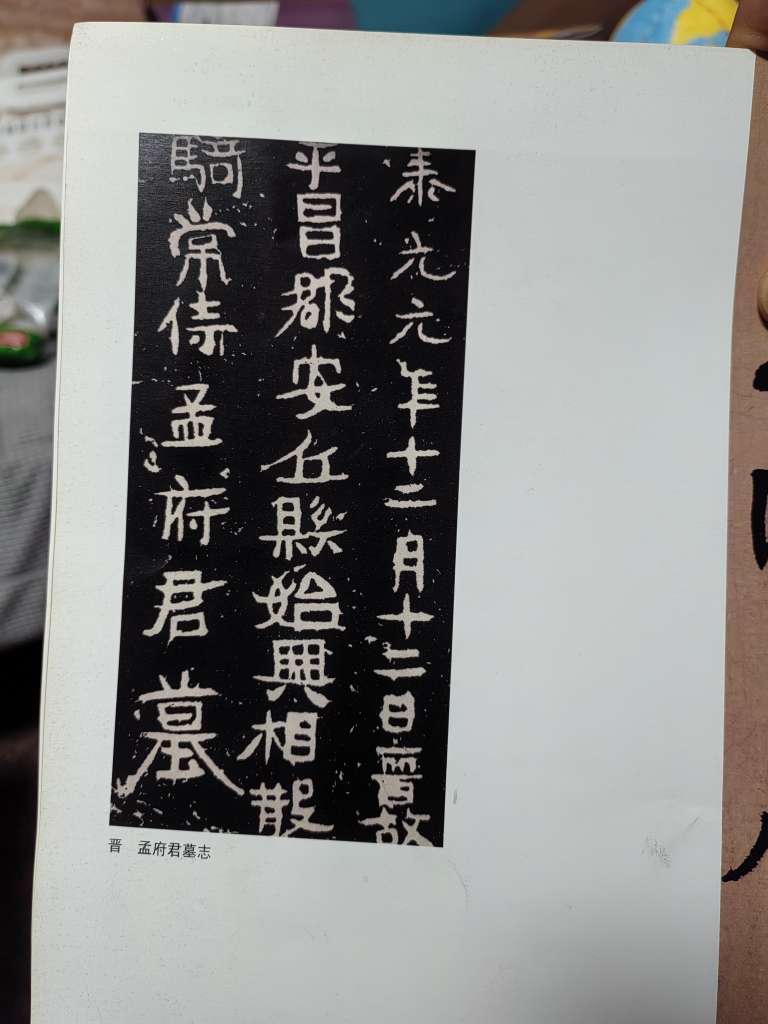 泰元元年十二月十二日晉故
平昌郡安丘縣始興相散
騎常侍孟府君墓
晋 孟府君墓志